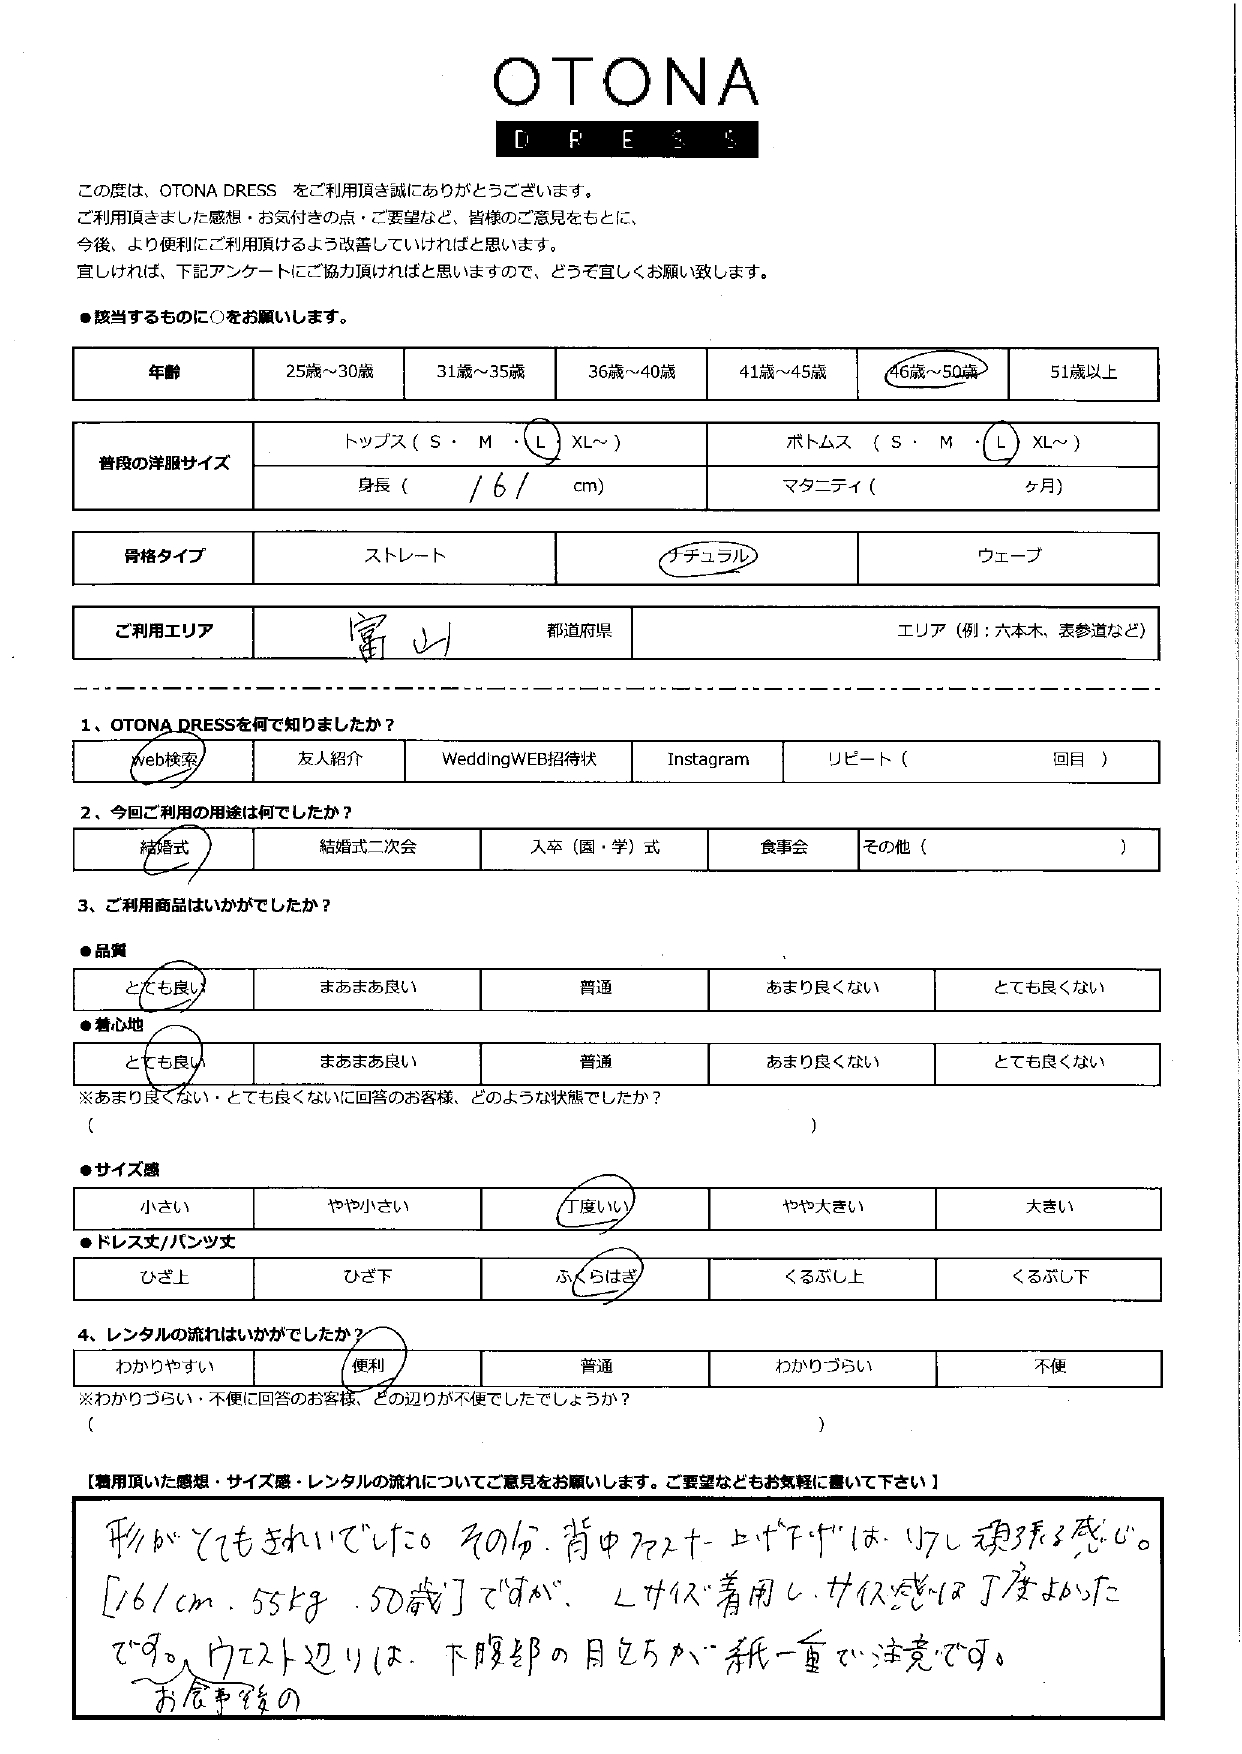 OTONA
DRESS
この度は、OTONA DRESS をご利用頂き誠にありがとうございます。
ご利用頂きました感想・お気付きの点・ご要望など、皆様のご意見をもとに、
今後、より便利にご利用頂けるよう改善していければと思います。
宜しければ、下記アンケートにご協力頂ければと思いますので、どうぞ宜しくお願い致します。
●該当するものに○をお願いします。
年齢 25歳～30歳 31歳～35歳 36歳～40歳 41歳～45歳 46歳～50歳 51歳以上
普段の洋服サイズ トップス ( S ・ M ・ L XL～ ) ボトムス ( S ・ M ・ L XL～ )
身長 ( 161 cm) マタニティ ( ヶ月)
骨格タイプ ストレート ナチュラル ウェーブ
ご利用エリア 富山 都道府県 エリア（例：六本木、表参道など）
1、OTONA DRESSを何で知りましたか？
web検索 友人紹介 WeddingWEB招待状 Instagram リピート ( 回目 )
2、今回ご利用の用途は何でしたか？
結婚式 結婚式二次会 入卒（園・学）式 食事会 その他 ( )
3、ご利用商品はいかがでしたか？
●品質
とても良い まあまあ良い 普通 あまり良くない とても良くない
●着心地
とても良い まあまあ良い 普通 あまり良くない とても良くない
※あまり良くない・とても良くないに回答のお客様、どのような状態でしたか？
( )
●サイズ感
小さい やや小さい 丁度いい やや大きい 大きい
●ドレス丈/パンツ丈
ひざ上 ひざ下 ふくらはぎ くるぶし上 くるぶし下
4、レンタルの流れはいかがでしたか？
わかりやすい 便利 普通 わかりづらい 不便
※わかりづらい・不便に回答のお客様、どの辺りが不便でしたでしょうか？
( )
【着用頂いた感想・サイズ感・レンタルの流れについてご意見をお願いします。ご要望などもお気軽に書いて下さい】
形がとてもきれいでした。その分、背中ファスナー上げ下げは、少し頑張る感じ。
[161cm．55kg．50歳]ですが、Lサイズ着用し、サイズ感は丁度よかった
です。ウエスト辺りは、下腹部の目立ちが紙一重で注意です。
お食事後の